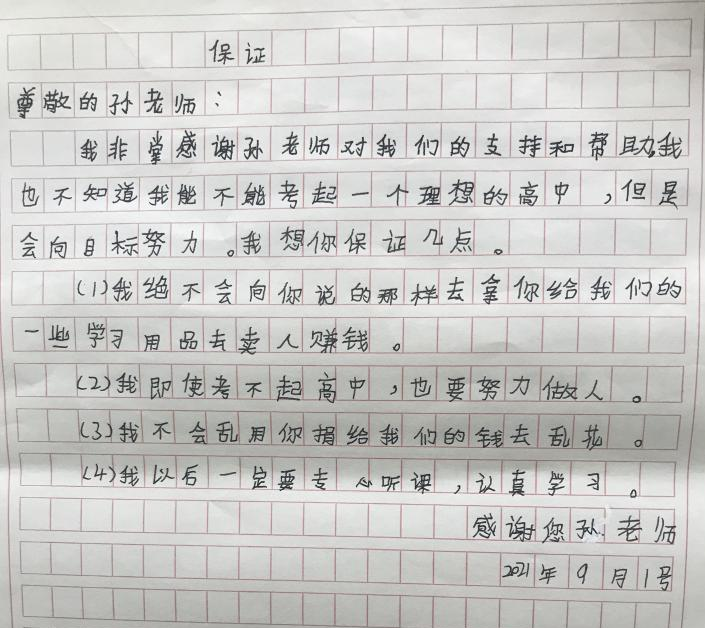 保证
尊敬的孙老师：
我非常感谢孙老师对我们的支持和帮助,我
也不知道我能不能考起一个理想的高中，但是
会向目标努力。我想你保证几点。
(1)我绝不会向你说的那样去拿你给我们的
一些学习用品去卖人赚钱。
(2)我即使考不起高中，也要努力做人。
(3)我不会乱用你捐给我们的钱去乱花。
(4)我以后一定要专心听课，认真学习。
感谢您孙老师
2021年9月1号